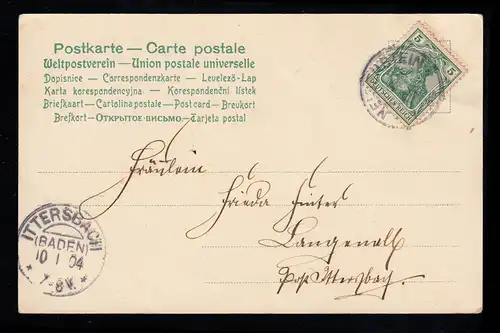 Postkarte — Carte postale
Weltpostverein — Union postale universelle
Dopisnice — Correspondenzkarte — Levelező-Lap
Karta korespondencyjna — Korespondenční lístek
Briefkaart — Cartolina postale — Post card — Breukort
Brefkort — Открытое письмо — Tarjeta postal
5 5
Fräulein
Frieda
Langenalb
Post Ittersbach
ITTERSBACH
(BADEN)
10 1 04
7-8V.